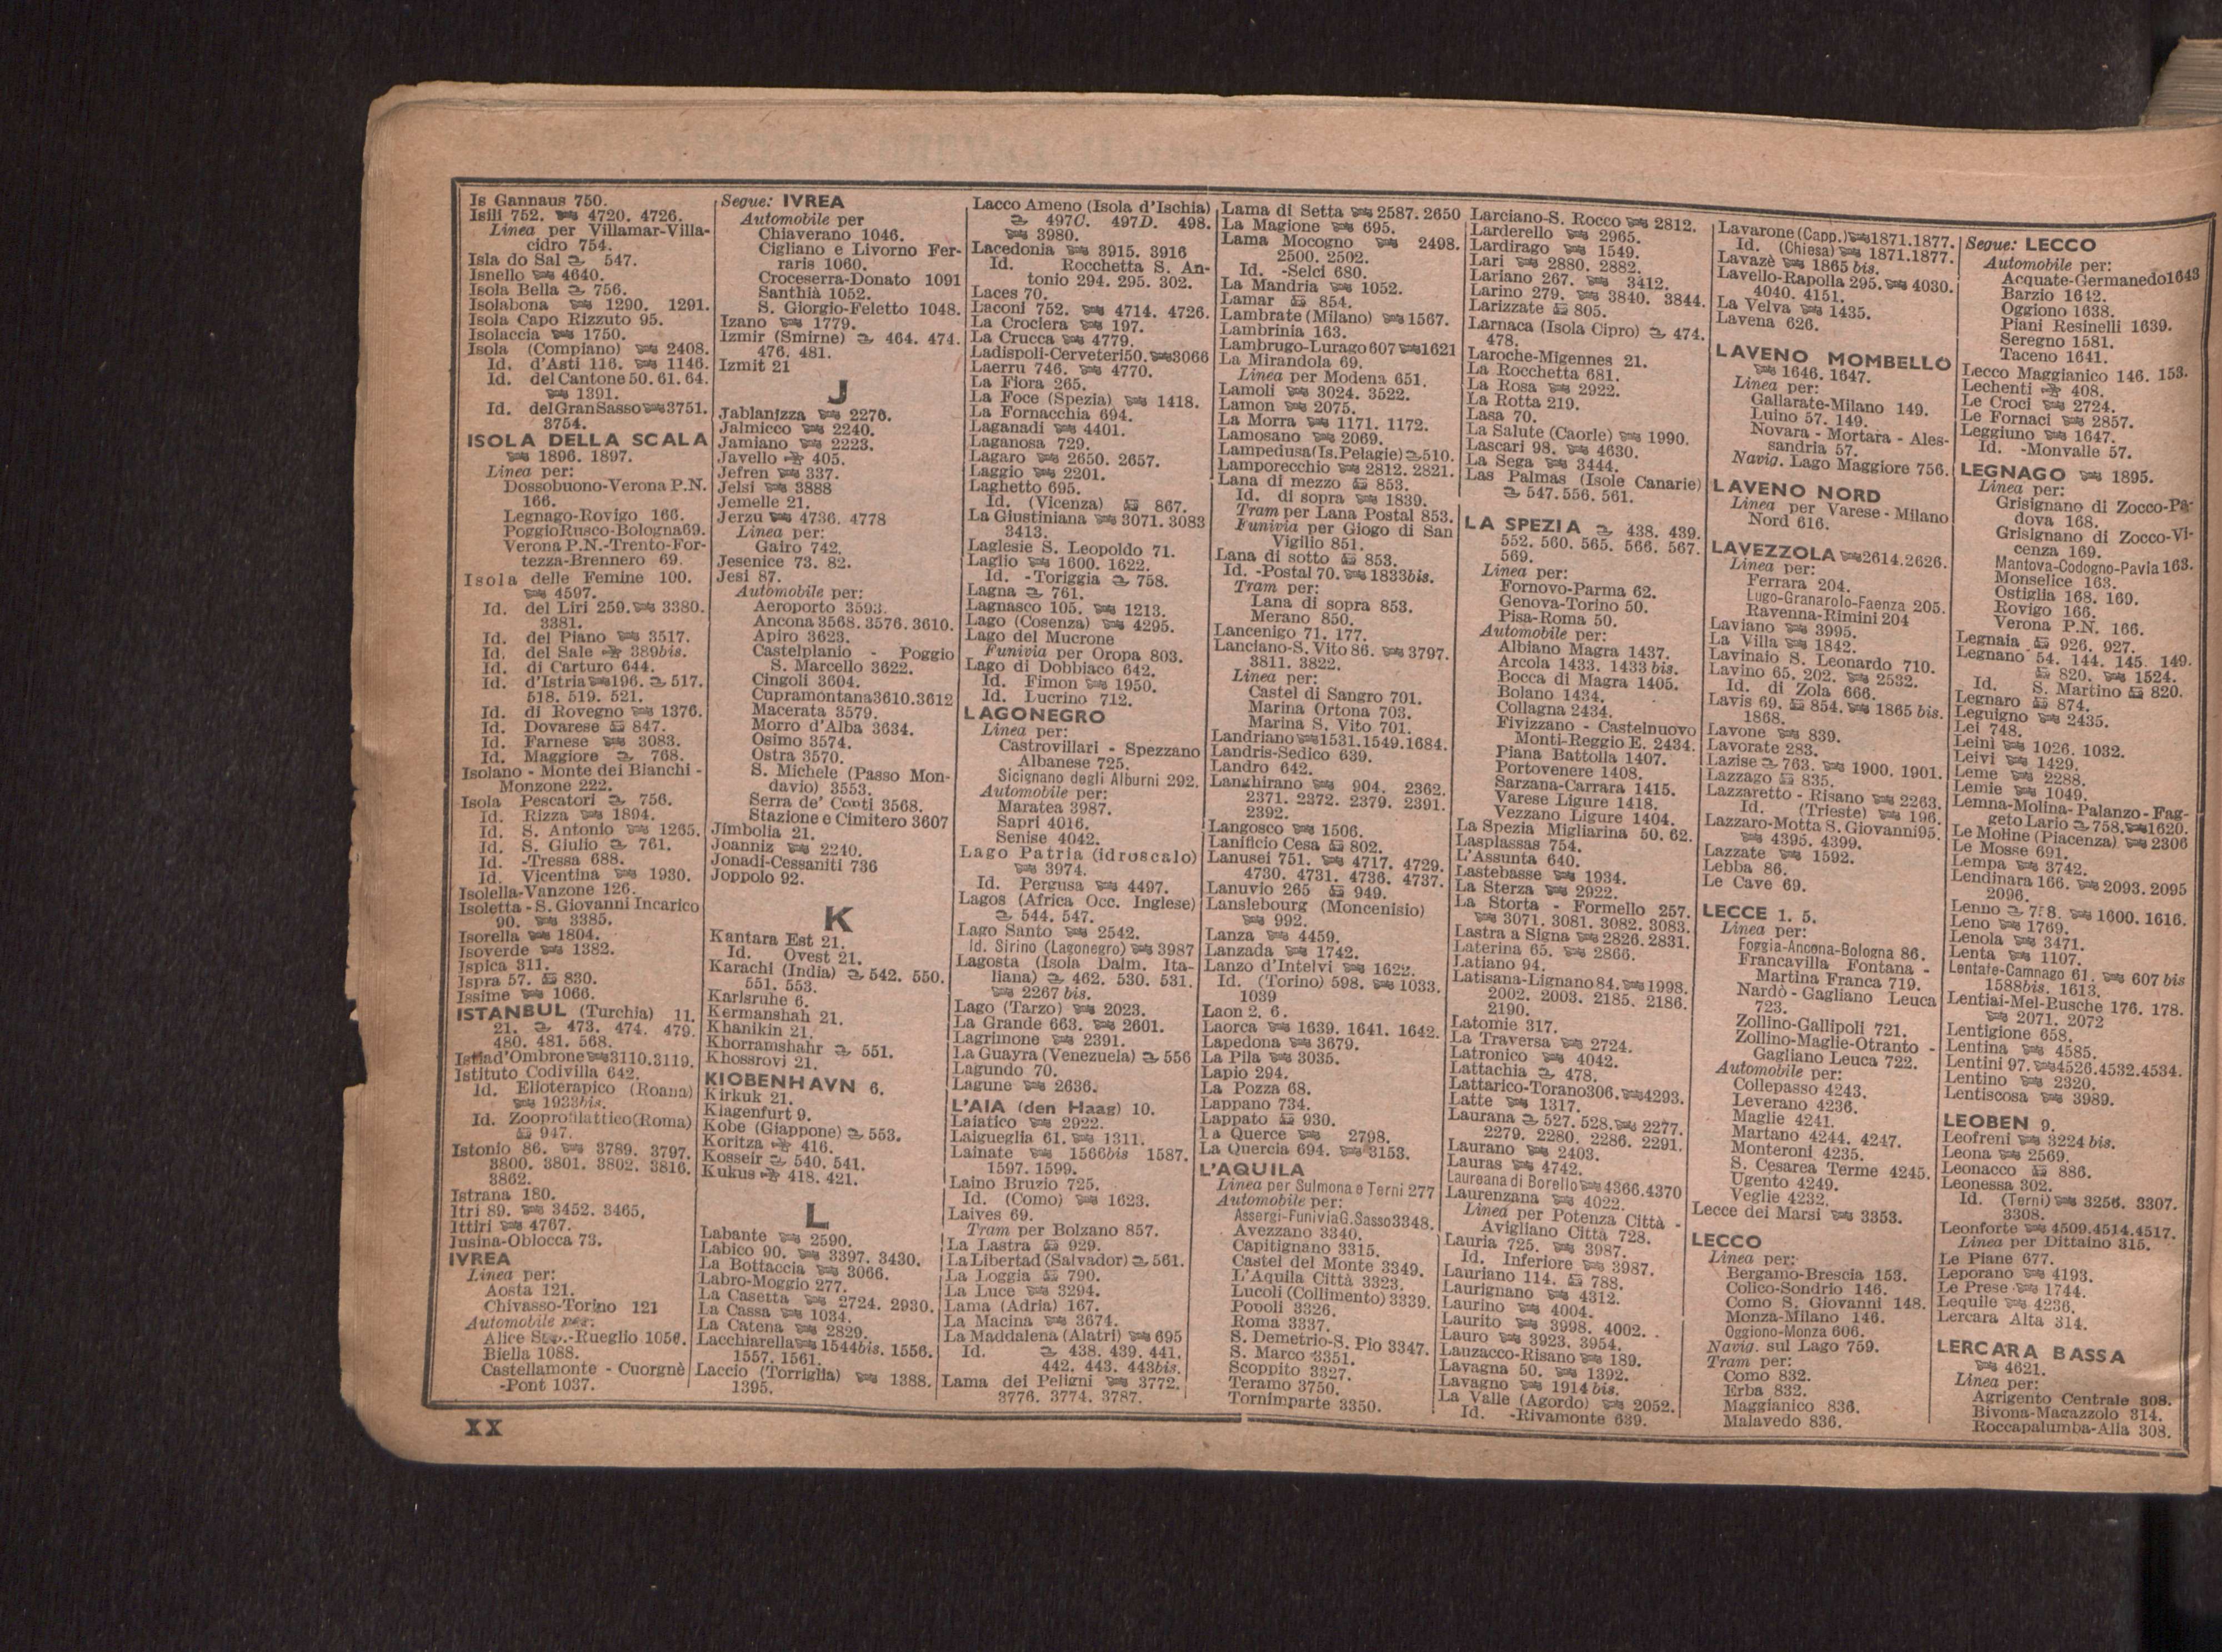 Is Gannaus 750.
Isili 752. 4720. 4726.
Linea per Villamar-Villa-
cidro 754.
Isla do Sal 547.
Isnello 4640.
Isola Bella 756.
Isolabona 1290. 1291.
Isola Capo Rizzuto 95.
Isolaccia 1750.
Isola (Compiano) 2408.
Id. d'Asti 116. 1146.
Id. del Cantone 50. 61. 64.
1391.
Id. del Gran Sasso 3751.
3754.
ISOLA DELLA SCALA
1896. 1897.
Linea per:
Dossobuono-Verona P.N.
166.
Legnago-Rovigo 166.
Poggio Rusco-Bologna 69.
Verona P.N.-Trento-For-
tezza-Brennero 69.
Isola delle Femine 100.
4597.
Id. del Liri 259. 3380.
3381.
Id. del Piano 3517.
Id. del Sale 389bis.
Id. di Carturo 644.
Id. d'Istria 196. 517.
518. 519. 521.
Id. di Rovegno 1376.
Id. Dovarese 847.
Id. Farnese 3083.
Id. Maggiore 768.
Isolano - Monte dei Bianchi -
Monzone 222.
Isola Pescatori 756.
Id. Rizza 1894.
Id. S. Antonio 1265.
Id. S. Giulio 761.
Id. -Tressa 688.
Id. Vicentina 1930.
Isolella-Vanzone 126.
Isoletta - S. Giovanni Incarico
90. 3385.
Isorella 1804.
Isoverde 1382.
Ispica 311.
Ispra 57. 830.
Issime 1066.
ISTANBUL (Turchia) 11.
21. 473. 474. 479.
480. 481. 568.
Istia d'Ombrone 3110. 3119.
Istituto Codivilla 642.
Id. Elioterapico (Roana)
1933bis.
Id. Zooprofilattico (Roma)
947.
Istonio 86. 3789. 3797.
3800. 3801. 3802. 3816.
3862.
Istrana 180.
Itri 89. 3452. 3465,
Ittiri 4767.
Iusina-Oblocca 73.
IVREA
Linea per:
Aosta 121.
Chivasso-Torino 121
Automobile per:
Alice Sup.-Rueglio 1056.
Biella 1088.
Castellamonte - Cuorgnè
-Pont 1037.
Segue: IVREA
Automobile per
Chiaverano 1046.
Cigliano e Livorno Fer-
raris 1060.
Croceserra-Donato 1091
Santhià 1052.
S. Giorgio-Feletto 1048.
Izano 1779.
Izmir (Smirne) 464. 474.
476. 481.
Izmit 21
J
Jablanizza 2276.
Jalmicco 2240.
Jamiano 2223.
Javello 405.
Jefren 337.
Jelsi 3888
Jemelle 21.
Jerzu 4736. 4778
Linea per:
Gairo 742.
Jesenice 73. 82.
Jesi 87.
Automobile per:
Aeroporto 3593.
Ancona 3568. 3576. 3610.
Apiro 3623.
Castelplanio - Poggio
S. Marcello 3622.
Cingoli 3604.
Cupramontana 3610.3612
Macerata 3579.
Morro d'Alba 3634.
Osimo 3574.
Ostra 3570.
S. Michele (Passo Mon-
davio) 3553.
Serra de' Conti 3568.
Stazione e Cimitero 3607
Jimbolia 21.
Joanniz 2240.
Jonadi-Cessaniti 736
Joppolo 92.
K
Kantara Est 21.
Id. Ovest 21.
Karachi (India) 542. 550.
551. 553.
Karlsruhe 6.
Kermanshah 21.
Khanikin 21.
Khorramshahr 551.
Khossrovi 21.
KIOBENHAVN 6.
Kirkuk 21.
Klagenfurt 9.
Kobe (Giappone) 553.
Koritza 416.
Kosseir 540. 541.
Kukus 418. 421.
L
Labante 2590.
Labico 90. 3397. 3430.
La Bottaccia 3066.
Labro-Moggio 277.
La Casetta 2724. 2930.
La Cassa 1034.
La Catena 2829.
Lacchiarella 1544bis. 1556.
1557. 1561.
Laccio (Torriglia) 1388.
1395.
Lacco Ameno (Isola d'Ischia)
497C. 497D. 498.
3980.
Lacedonia 3915. 3916
Id. Rocchetta S. An-
tonio 294. 295. 302.
Laces 70.
Laconi 752. 4714. 4726.
La Crociera 197.
La Crucca 4779.
Ladispoli-Cerveteri 50. 3066
Laerru 746. 4770.
La Fiora 265.
La Foce (Spezia) 1418.
La Fornacchia 694.
Laganadi 4401.
Laganosa 729.
Lagaro 2650. 2657.
Laggio 2201.
Laghetto 695.
Id. (Vicenza) 867.
La Giustiniana 3071. 3083
3413.
Laglesie S. Leopoldo 71.
Laglio 1600. 1622.
Id. -Toriggia 758.
Lagna 761.
Lagnasco 105. 1213.
Lago (Cosenza) 4295.
Lago del Mucrone
Funivia per Oropa 803.
Lago di Dobbiaco 642.
Id. Fimon 1950.
Id. Lucrino 712.
LAGONEGRO
Linea per:
Castrovillari - Spezzano
Albanese 725.
Sicignano degli Alburni 292.
Automobile per:
Maratea 3987.
Sapri 4016.
Senise 4042.
Lago Patria (idroscalo)
3974.
Id. Pergusa 4497.
Lagos (Africa Occ. Inglese)
544. 547.
Lago Santo 2542.
Id. Sirino (Lagonegro) 3987
Lagosta (Isola Dalm. Ita-
liana) 462. 530. 531.
2267 bis.
Lago (Tarzo) 2023.
La Grande 663. 2601.
Lagrimone 2391.
La Guayra (Venezuela) 556
Lagundo 70.
Lagune 2636.
L'AIA (den Haag) 10.
Laiatico 2922.
Laigueglia 61. 1311.
Lainate 1566bis 1587.
1597. 1599.
Laino Bruzio 725.
Id. (Como) 1623.
Laives 69.
Tram per Bolzano 857.
La Lastra 929.
La Libertad (Salvador) 561.
La Loggia 790.
La Luce 3294.
Lama (Adria) 167.
La Macina 3674.
La Maddalena (Alatri) 695
Id. 438. 439. 441.
442. 443. 443bis.
Lama dei Peligni 3772.
3776. 3774. 3787.
Lama di Setta 2587. 2650
La Magione 695.
Lama Mocogno 2498.
2500. 2502.
Id. -Selci 680.
La Mandria 1052.
Lamar 854.
Lambrate (Milano) 1567.
Lambrinia 163.
Lambrugo-Lurago 607 1621
La Mirandola 69.
Linea per Modena 651.
Lamoli 3024. 3522.
Lamon 2075.
La Morra 1171. 1172.
Lamosano 2069.
Lampedusa (Is. Pelagie) 510.
Lamporecchio 2812. 2821.
Lana di mezzo 853.
Id. di sopra 1839.
Tram per Lana Postal 853.
Funivia per Giogo di San
Vigilio 851.
Lana di sotto 853.
Id. -Postal 70. 1833bis.
Tram per:
Lana di sopra 853.
Merano 850.
Lancenigo 71. 177.
Lanciano-S. Vito 86. 3797.
3811. 3822.
Linea per:
Castel di Sangro 701.
Marina Ortona 703.
Marina S. Vito 701.
Landriano 1531.1549.1684.
Landris-Sedico 639.
Landro 642.
Langhirano 904. 2362.
2371. 2372. 2379. 2391.
2392.
Langosco 1506.
Lanificio Cesa 802.
Lanusei 751. 4717. 4729.
4730. 4731. 4736. 4737.
Lanuvio 265 949.
Lanslebourg (Moncenisio)
992.
Lanza 4459.
Lanzada 1742.
Lanzo d'Intelvi 1622.
Id. (Torino) 598. 1033.
1039
Laon 2. 6.
Laorca 1639. 1641. 1642.
Lapedona 3679.
La Pila 3035.
Lapio 294.
La Pozza 68.
Lappano 734.
Lappato 930.
La Querce 2798.
La Quercia 694. 3153.
L'AQUILA
Linea per Sulmona e Terni 277
Automobile per:
Assergi-Funivia G. Sasso 3348.
Avezzano 3340.
Capitignano 3315.
Castel del Monte 3349.
L'Aquila Città 3323.
Lucoli (Collimento) 3339.
Popoli 3326.
Roma 3337.
S. Demetrio-S. Pio 3347.
S. Marco 3351.
Scoppito 3327.
Teramo 3750.
Tornimparte 3350.
Larciano-S. Rocco 2812.
Larderello 2965.
Lardirago 1549.
Lari 2880. 2882.
Lariano 267. 3412.
Larino 279. 3840. 3844.
Larizzate 805.
Larnaca (Isola Cipro) 474.
478.
Laroche-Migennes 21.
La Rocchetta 681.
La Rosa 2922.
La Rotta 219.
Lasa 70.
La Salute (Caorle) 1990.
Lascari 98. 4630.
La Sega 3444.
Las Palmas (Isole Canarie)
547. 556. 561.
LA SPEZIA 438. 439.
552. 560. 565. 566. 567.
569.
Linea per:
Fornovo-Parma 62.
Genova-Torino 50.
Pisa-Roma 50.
Automobile per:
Albiano Magra 1437.
Arcola 1433. 1433 bis.
Bocca di Magra 1405.
Bolano 1434.
Collagna 2434.
Fivizzano - Castelnuovo
Monti-Reggio E. 2434.
Piana Battolla 1407.
Portovenere 1408.
Sarzana-Carrara 1415.
Varese Ligure 1418.
Vezzano Ligure 1404.
La Spezia Migliarina 50. 62.
Lasplassas 754.
L'Assunta 640.
Lastebasse 1934.
La Sterza 2922.
La Storta - Formello 257.
3071. 3081. 3082. 3083.
Lastra a Signa 2826. 2831.
Laterina 65. 2866.
Latiano 94.
Latisana-Lignano 84. 1998.
2002. 2003. 2185. 2186.
2190.
Latomie 317.
La Traversa 2724.
Latronico 4042.
Lattachia 478.
Lattarico-Torano 306. 4293.
Latte 1317.
Laurana 527. 528. 2277.
2279. 2280. 2286. 2291.
Laurano 2403.
Lauras 4742.
Laureana di Borello 4366.4370
Laurenzana 4022.
Linea per Potenza Città -
Avigliano Città 728.
Lauria 725. 3987.
Id. Inferiore 3987.
Lauriano 114. 788.
Laurignano 4312.
Laurino 4004.
Laurito 3998. 4002.
Lauro 3923. 3954.
Lauzacco-Risano 189.
Lavagna 50. 1392.
Lavagno 1914 bis.
La Valle (Agordo) 2052.
Id. -Rivamonte 639.
Lavarone (Capp.) 1871.1877.
Id. (Chiesa) 1871.1877.
Lavazè 1865 bis.
Lavello-Rapolla 295. 4030.
4040. 4151.
La Velva 1435.
Lavena 626.
LAVENO MOMBELLO
1646. 1647.
Linea per:
Gallarate-Milano 149.
Luino 57. 149.
Novara - Mortara - Ales-
sandria 57.
Navig. Lago Maggiore 756.
LAVENO NORD
Linea per Varese - Milano
Nord 616.
LAVEZZOLA 2614.2626.
Linea per:
Ferrara 204.
Lugo-Granarolo-Faenza 205.
Ravenna-Rimini 204
Laviano 3995.
La Villa 1842.
Lavinaio S. Leonardo 710.
Lavino 65. 202. 2532.
Id. di Zola 666.
Lavis 69. 854. 1865 bis.
1868.
Lavone 839.
Lavorate 283.
Lazise 763. 1900. 1901.
Lazzago 835.
Lazzaretto - Risano 2263.
Id. (Trieste) 196.
Lazzaro-Motta S. Giovanni 95.
4395. 4399.
Lazzate 1592.
Lebba 86.
Le Cave 69.
LECCE 1. 5.
Linea per:
Foggia-Ancona-Bologna 86.
Francavilla Fontana -
Martina Franca 719.
Nardò - Gagliano Leuca
723.
Zollino-Gallipoli 721.
Zollino-Maglie-Otranto -
Gagliano Leuca 722.
Automobile per:
Collepasso 4243.
Leverano 4236.
Maglie 4241.
Martano 4244. 4247.
Monteroni 4235.
S. Cesarea Terme 4245.
Ugento 4249.
Veglie 4232.
Lecce dei Marsi 3353.
LECCO
Linea per:
Bergamo-Brescia 153.
Colico-Sondrio 146.
Como S. Giovanni 148.
Monza-Milano 146.
Oggiono-Monza 606.
Navig. sul Lago 759.
Tram per:
Como 832.
Erba 832.
Maggianico 836.
Malavedo 836.
Segue: LECCO
Automobile per:
Acquate-Germanedo 1643
Barzio 1642.
Oggiono 1638.
Piani Resinelli 1639.
Seregno 1581.
Taceno 1641.
Lecco Maggianico 146. 153.
Lechenti 408.
Le Croci 2724.
Le Fornaci 2857.
Leggiuno 1647.
Id. -Monvalle 57.
LEGNAGO 1895.
Linea per:
Grisignano di Zocco-Pa-
dova 168.
Grisignano di Zocco-Vi-
cenza 169.
Mantova-Codogno-Pavia 163.
Monselice 163.
Ostiglia 168. 169.
Rovigo 166.
Verona P.N. 166.
Legnaia 926. 927.
Legnano 54. 144. 145. 149.
820. 1524.
Id. S. Martino 820.
Legnaro 874.
Leguigno 2435.
Lei 748.
Leini 1026. 1032.
Leivi 1429.
Leme 2288.
Lemie 1049.
Lemna-Molina-Palanzo-Fag-
geto Lario 758. 1620.
Le Moline (Piacenza) 2306
Le Mosse 691.
Lempa 3742.
Lendinara 166. 2093. 2095
2096.
Lenno 758. 1600. 1616.
Leno 1769.
Lenola 3471.
Lenta 1107.
Lentate-Camnago 61. 607 bis
1588bis. 1613.
Lentiai-Mel-Busche 176. 178.
2071. 2072
Lentigione 658.
Lentina 4585.
Lentini 97. 4526.4532.4534.
Lentino 2320.
Lentiscosa 3989.
LEOBEN 9.
Leofreni 3224 bis.
Leona 2569.
Leonacco 886.
Leonessa 302.
Id. (Terni) 3256. 3307.
3308.
Leonforte 4509.4514.4517.
Linea per Dittaino 315.
Le Piane 677.
Leporano 4193.
Le Prese 1744.
Lequile 4236.
Lercara Alta 314.
LERCARA BASSA
4621.
Linea per:
Agrigento Centrale 308.
Bivona-Magazzolo 314.
Roccapalumba-Alia 308.
XX